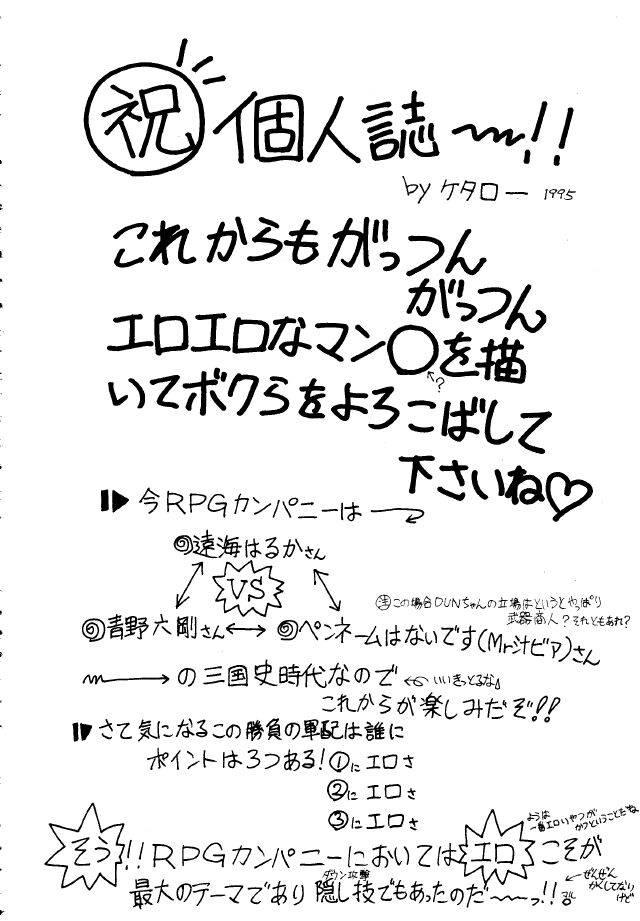 祝 個人誌〜!!
by ケタロー 1995
これからもがっつん
がっつん
エロエロなマン〇を描
←?
いてボクらをよろこばして
下さいね♡
今RPGカンパニーは
遠海はるかさん
VS
注この場合DUNちゃんの立場はというとやっぱり
武器商人?それともあれ?
青野六剛さん ↔ ペンネームはないです(Mr汁ビア)さん
→の三国史時代なので
←いいきっとるな
これからが楽しみだぞ!!
さて気になるこの勝負の軍配は誰に
ポイントは3つある!①にエロさ
②にエロさ
③にエロさ
ようは
一番エロいやつが
かつということだね
そう!!RPGカンパニーにおいてはエロこそが
ダウン攻撃
最大のテーマであり隠し技でもあったのだ〜っ!!
←ぜんぜん
かくしてない
けど